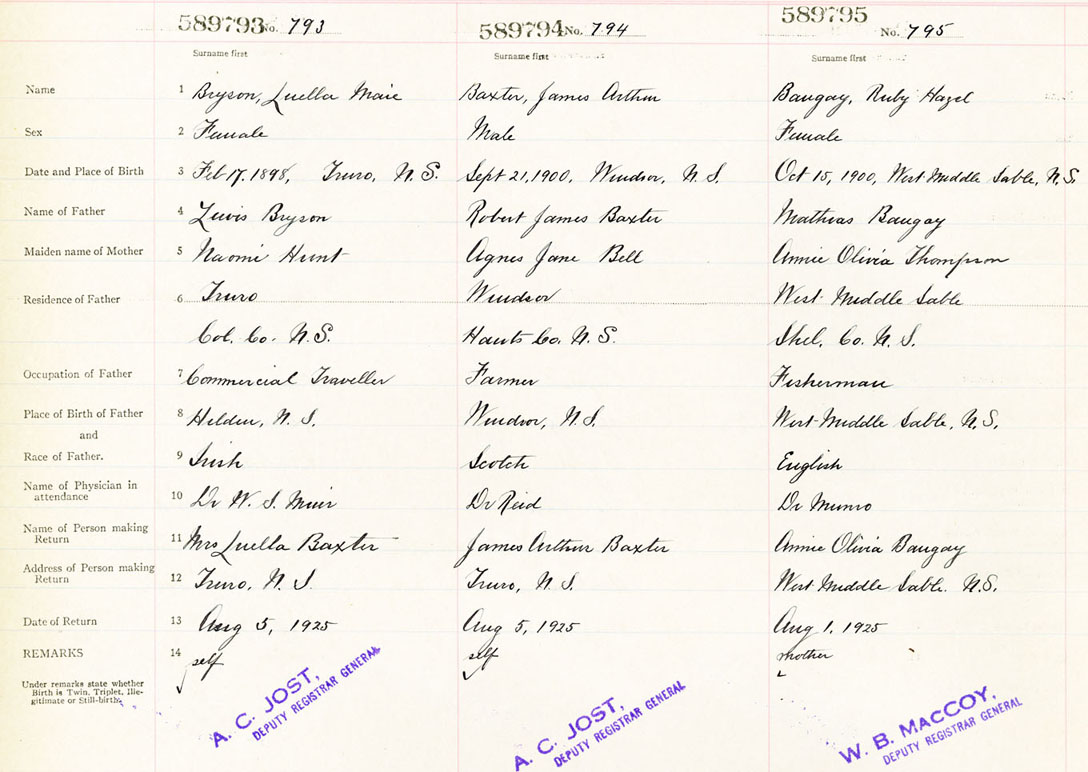 589793 No. 793 589794 No. 794 589795 No. 795
Surname first Surname first Surname first
Name 1 Bryson, Luella Maie Baxter, James Arthur Baugay, Ruby Hazel
Sex 2 Female Male Female
Date and Place of Birth 3 Feb 17. 1898, Truro, N.S. Sept 21, 1900, Windsor, N.S. Oct 15, 1900, West Middle Sable, N.S.
Name of Father 4 Lewis Bryson Robert James Baxter Mathias Baugay
Maiden name of Mother 5 Naomi Hunt Agnes Jane Bell Annie Olivia Thompson
Residence of Father 6 Truro Windsor West Middle Sable
Col. Co. N.S. Hants Co. N.S. Shel. Co. N.S.
Occupation of Father 7 Commercial Traveller Farmer Fisherman
Place of Birth of Father 8 Hilden, N.S. Windsor, N.S. West Middle Sable, N.S.
and
Race of Father. 9 Irish Scotch English
Name of Physician in
attendance 10 Dr W. S. Muir Dr Reid Dr Munro
Name of Person making
Return 11 Mrs Luella Baxter James Arthur Baxter Annie Olivia Baugay
Address of Person making
Return 12 Truro, N.S. Truro, N.S. West Middle Sable. N.S.
Date of Return 13 Aug 5, 1925 Aug 5, 1925 Aug 1, 1925
REMARKS 14 self self mother
Under remarks state whether
Birth is Twin, Triplet, Ille-
gitimate or Still-birth.
A. C. JOST, A. C. JOST, W. B. MACCOY,
DEPUTY REGISTRAR GENERAL DEPUTY REGISTRAR GENERAL DEPUTY REGISTRAR GENERAL